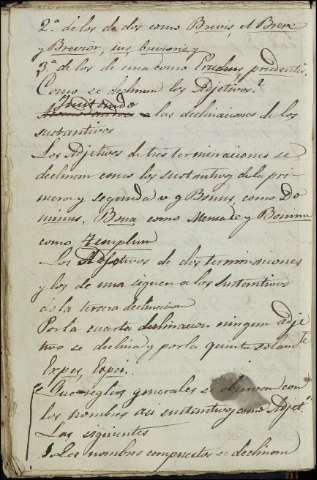 2ª de los de dos como Brevis, et Breve
y Brevior, sus brevioris y
3ª de los de una como Prudens, prudentis
Como se declinan los Adjetivos?
Imitando las declinaciones de los
sustantivos
Los Adjetivos de tres terminaciones se
declinan como los sustantivos de la pri
mera y segunda v g Bonus, como Do
minus, Bona como Mensa y Bonum
como Templum
Los Adjetivos de dos terminaciones
y los de una siguen a los sustantivos
de la tercera declinacion
Por la cuarta declinacion ningun Adje
tivo se declina y por la quinta solamte
Expes, Expei.
Que reglas generales se observan con
los nombres asi sustantivos como Adjets
Las siguientes
1. Los nombres compuestos se declinan